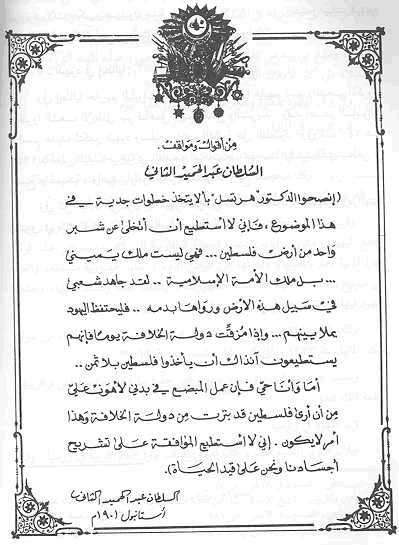 مِن أقوالــ ومواقف.
السلطان عبد الحميد الثاني
( إنصحوا الدكتور هرتسل بألا يتخذ خطوات جدية في
هذا الموضوع ، فإني لا أستطيع أن أتخلى عن شبر
واحد من أرض فلسطين ... فهي ليست ملك يميني
... بل ملك الأمة الإسلامية .. لقد جاهد شعبي
في سبيل هذه الأرض ورواها بدمه .. فليحتفظ اليهود
بملايينهم ... وإذا مزقت دولة الخلافة يومًا فإنهم
يستطيعون آنذاك أن يأخذوا فلسطين بلا ثمن ..
أما وأنا حي فإن عمل المبضع في بدني لأهون عليّ
مِن أن أرى فلسطين قد بترت مِن دولة الخلافة وهذا
أمر لا يكون . إني لا أستطيع الموافقة على تشريح
أجسادنا ونحن على قيد الحياة).
السلطان عبد الحميد الثاني
استانبول ١٩٠١م